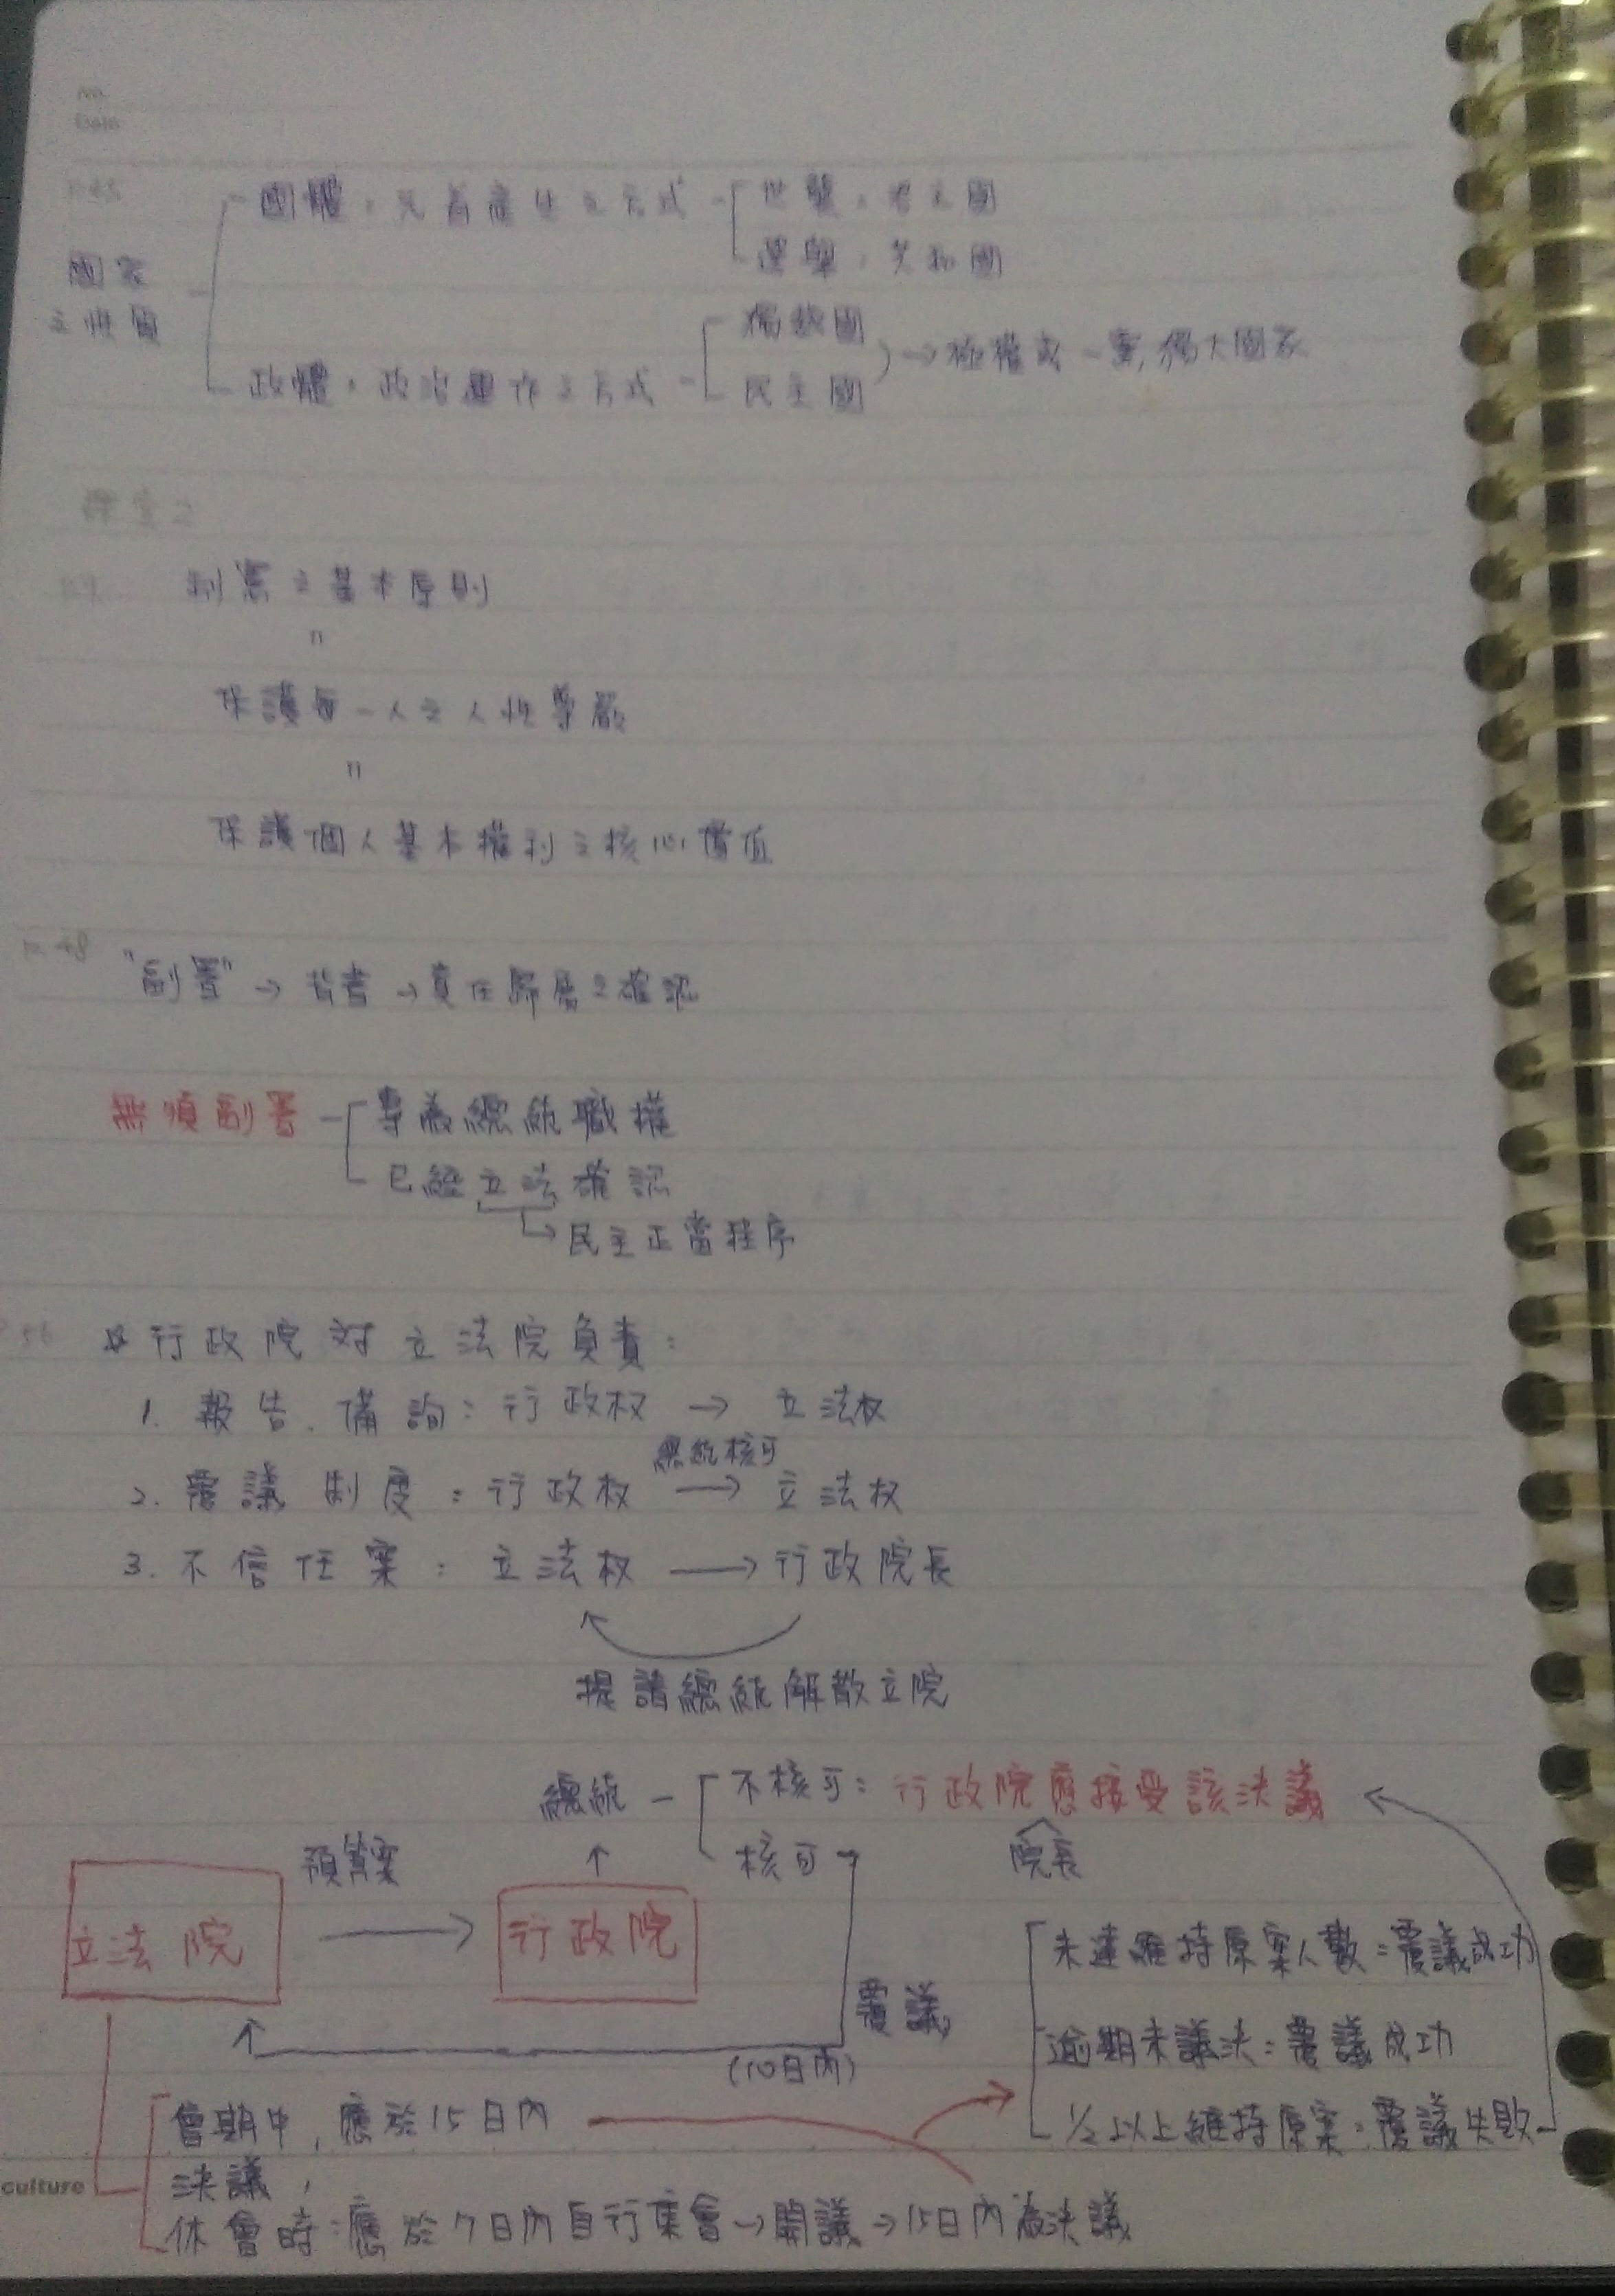 No.
Date
國體：元首產生之方式
世襲：君主國
選舉：共和國
國家
之性質
獨裁國
民主國
→極權或一黨獨大國家
政體：政治運作之方式
制憲之基本原則
"
保護每一人之人性尊嚴
"
保護個人基本權利之核心價值
P.48
"副署"→背書→責任歸屬之確認
無須副署
專屬總統職權
已經立法確認
民主正當程序
行政院對立法院負責：
1. 報告、備詢：行政权 → 立法权
總統核可
2. 覆議制度：行政权 → 立法权
3. 不信任案：立法权 → 行政院長
提請總統解散立院
總統
不核可：行政院應接受該決議
核可
院長
預算案
立法院
行政院
覆議
(10日內)
未達維持原案人數：覆議成功
逾期未議決：覆議成功
1/2以上維持原案：覆議失敗
會期中，應於15日內
決議，
休會時：應於7日內自行集會→開議→15日內為決議
culture